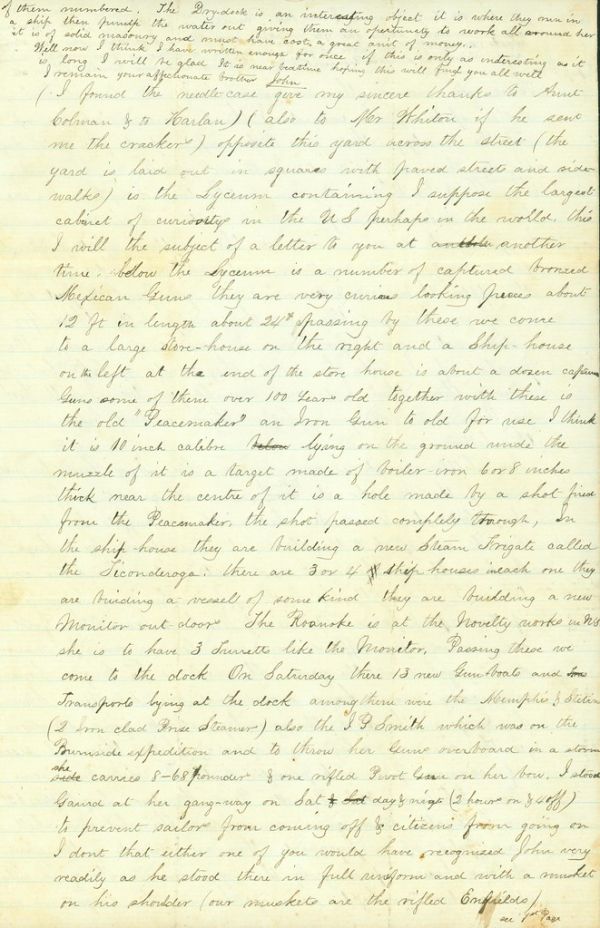 of them numbered. The Dry-dock is an interesting object it is where they run in
a ship then pump the water out giving them an opertunity to work all around her
it is of solid masonry and must have cost a great amt of money.
Well now I think I have written enough for once if this is only as interesting as it
is long I will be glad It is near bedtime hoping this will find you all well
I remain your affectionate brother John
( I found the needle-case give my sincere thanks to Aunt
Colman & to Harlan) ( also to Mr Whiton if he sent
me the crackers) opposite this yard across the street (the
yard is laid out in squares with paved streets and side-
walks) is the Lyceum containing I suppose the largest
cabinet of curiositys in the U S perhaps in the world. this
I will the subject of a letter to you at another
time. below the Lyceum is a number of captured bronzed
Mexican Guns they are very curious looking pieces about
12 ft in length about 24s passing by these we come
to a large store-house on the right and a Ship-house
on the left at the end of the store house is about a dozen
Guns some of them over 100 years old together with these is
the old "Peacemaker" an Iron Gun to old for use I think
it is 10 inch calibre below lying on the ground unde the
muzzle of it is a target made of boiler-iron 6 or 8 inches
thick near the centre of it is a hole made by a shot fired
from the Peacemaker, the shot passed completly through, In
the ship-house they are building a new Steam Frigate called
the Ticonderoga. there are 3 or 4 ship houses in each one they
are building a vessel of some kind they are building a new
Monitor out-doors The Roanoke is at the Novelty works in NY
she is to have 3 Turretts like the Monitor, Passing these we
come to the dock On Saturday there 13 new Gun-boats and
Transports lying at the dock among them were the Memphis & Stetin
(2 Iron clad Prise Steamers) also the I P Smith which was on the
Burnside expedition and to throw her Guns overboard in a storm
she carries 8-68 pounders & one rifled Pivot Gun on her bow. I stood
Gaurd at her gang-way on Sat day & night (2 hours on & 4 off)
to prevent sailors from coming off & citizens from going on
I dont that either one of you would have recognised John very
readily as he stood there in full uniform and with a musket
on his shoulder (our muskets are the rifled Enfields)
see 1st Page